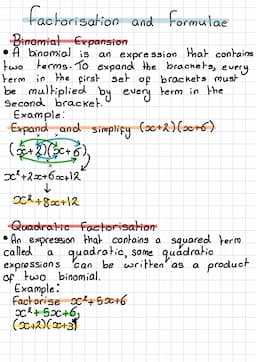 Factorisation and Formulae
Binomial Expansion
• A binomial is an expression that contains
two terms. To expand the brackets, every
term in the first set of brackets must
be multiplied by every term in the
second bracket.
Example:
Expand and simplify (x+2)(x+6)
(x+2)(x+6)
x²+2x+6x+12
↓
x²+8x+12
Quadratic Factorisation
• An expression that contains a squared term
called a quadratic, some quadratic
expressions can be written as a product
of two binomial.
Example:
Factorise x²+5x+6
x²+5x+6
(x+2)(x+3)